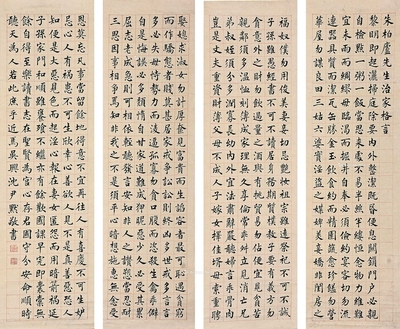 朱柏廬先生治家格言
黎明即起灑掃庭除要內外整潔既昏便息關鎖門戶必親
自檢點一粥一飯當思來處不易半絲半縷恆念物力維艱
宜未雨而綢繆毋臨渴而掘井自奉必須儉約宴客切勿流
連器具質而潔瓦缶勝金玉飲食約而精園蔬愈珍饈勿營
華屋勿謀良田三姑六婆實淫盜之媒婢美妾嬌非閨房之
福奴僕勿用俊美妻妾切忌艷妝祖宗雖遠祭祀不可不誠
子孫雖愚經書不可不讀居身務期質樸教子要有義方勿
貪意外之財勿飲過量之酒與肩挑貿易勿佔便宜見貧苦
親鄰須多溫恤刻薄成家理無久享倫常乖舛立見消亡兄
弟叔姪須分多潤寡長幼內外宜法肅辭嚴聽婦言乖骨肉
豈是丈夫重資財薄父母不成人子嫁女擇佳壻毋索重聘
娶媳求淑女勿計厚奩見富貴而生諂容者最可恥遇貧窮
而作驕態者賤莫甚居家戒爭訟訟則終凶處世戒多言言
多必失毋恃勢力而凌逼孤寡毋貪口腹而恣殺牲禽乖僻
自是悔誤必多頹惰自甘家道難成狎昵惡少久必受其累
屈志老成急則可相依輕聽發言安知非人之譖愬當忍耐
三思因事相爭焉知非我之不是須平心暗想施惠無念受
恩莫忘凡事當留餘地得意不宜再往人有喜慶不可生妒
忌心人有禍患不可生欣幸心善欲人見不是真善惡恐人
知便是大惡見色而起淫心報在妻女匿怨而用暗箭禍延
子孫家門和順雖饔飧不繼亦有餘歡國課早完即囊橐無
餘自得至樂讀書志在聖賢為官心存君國守分安命順時
聽天為人若此庶乎近焉 吳興沈尹默敬書